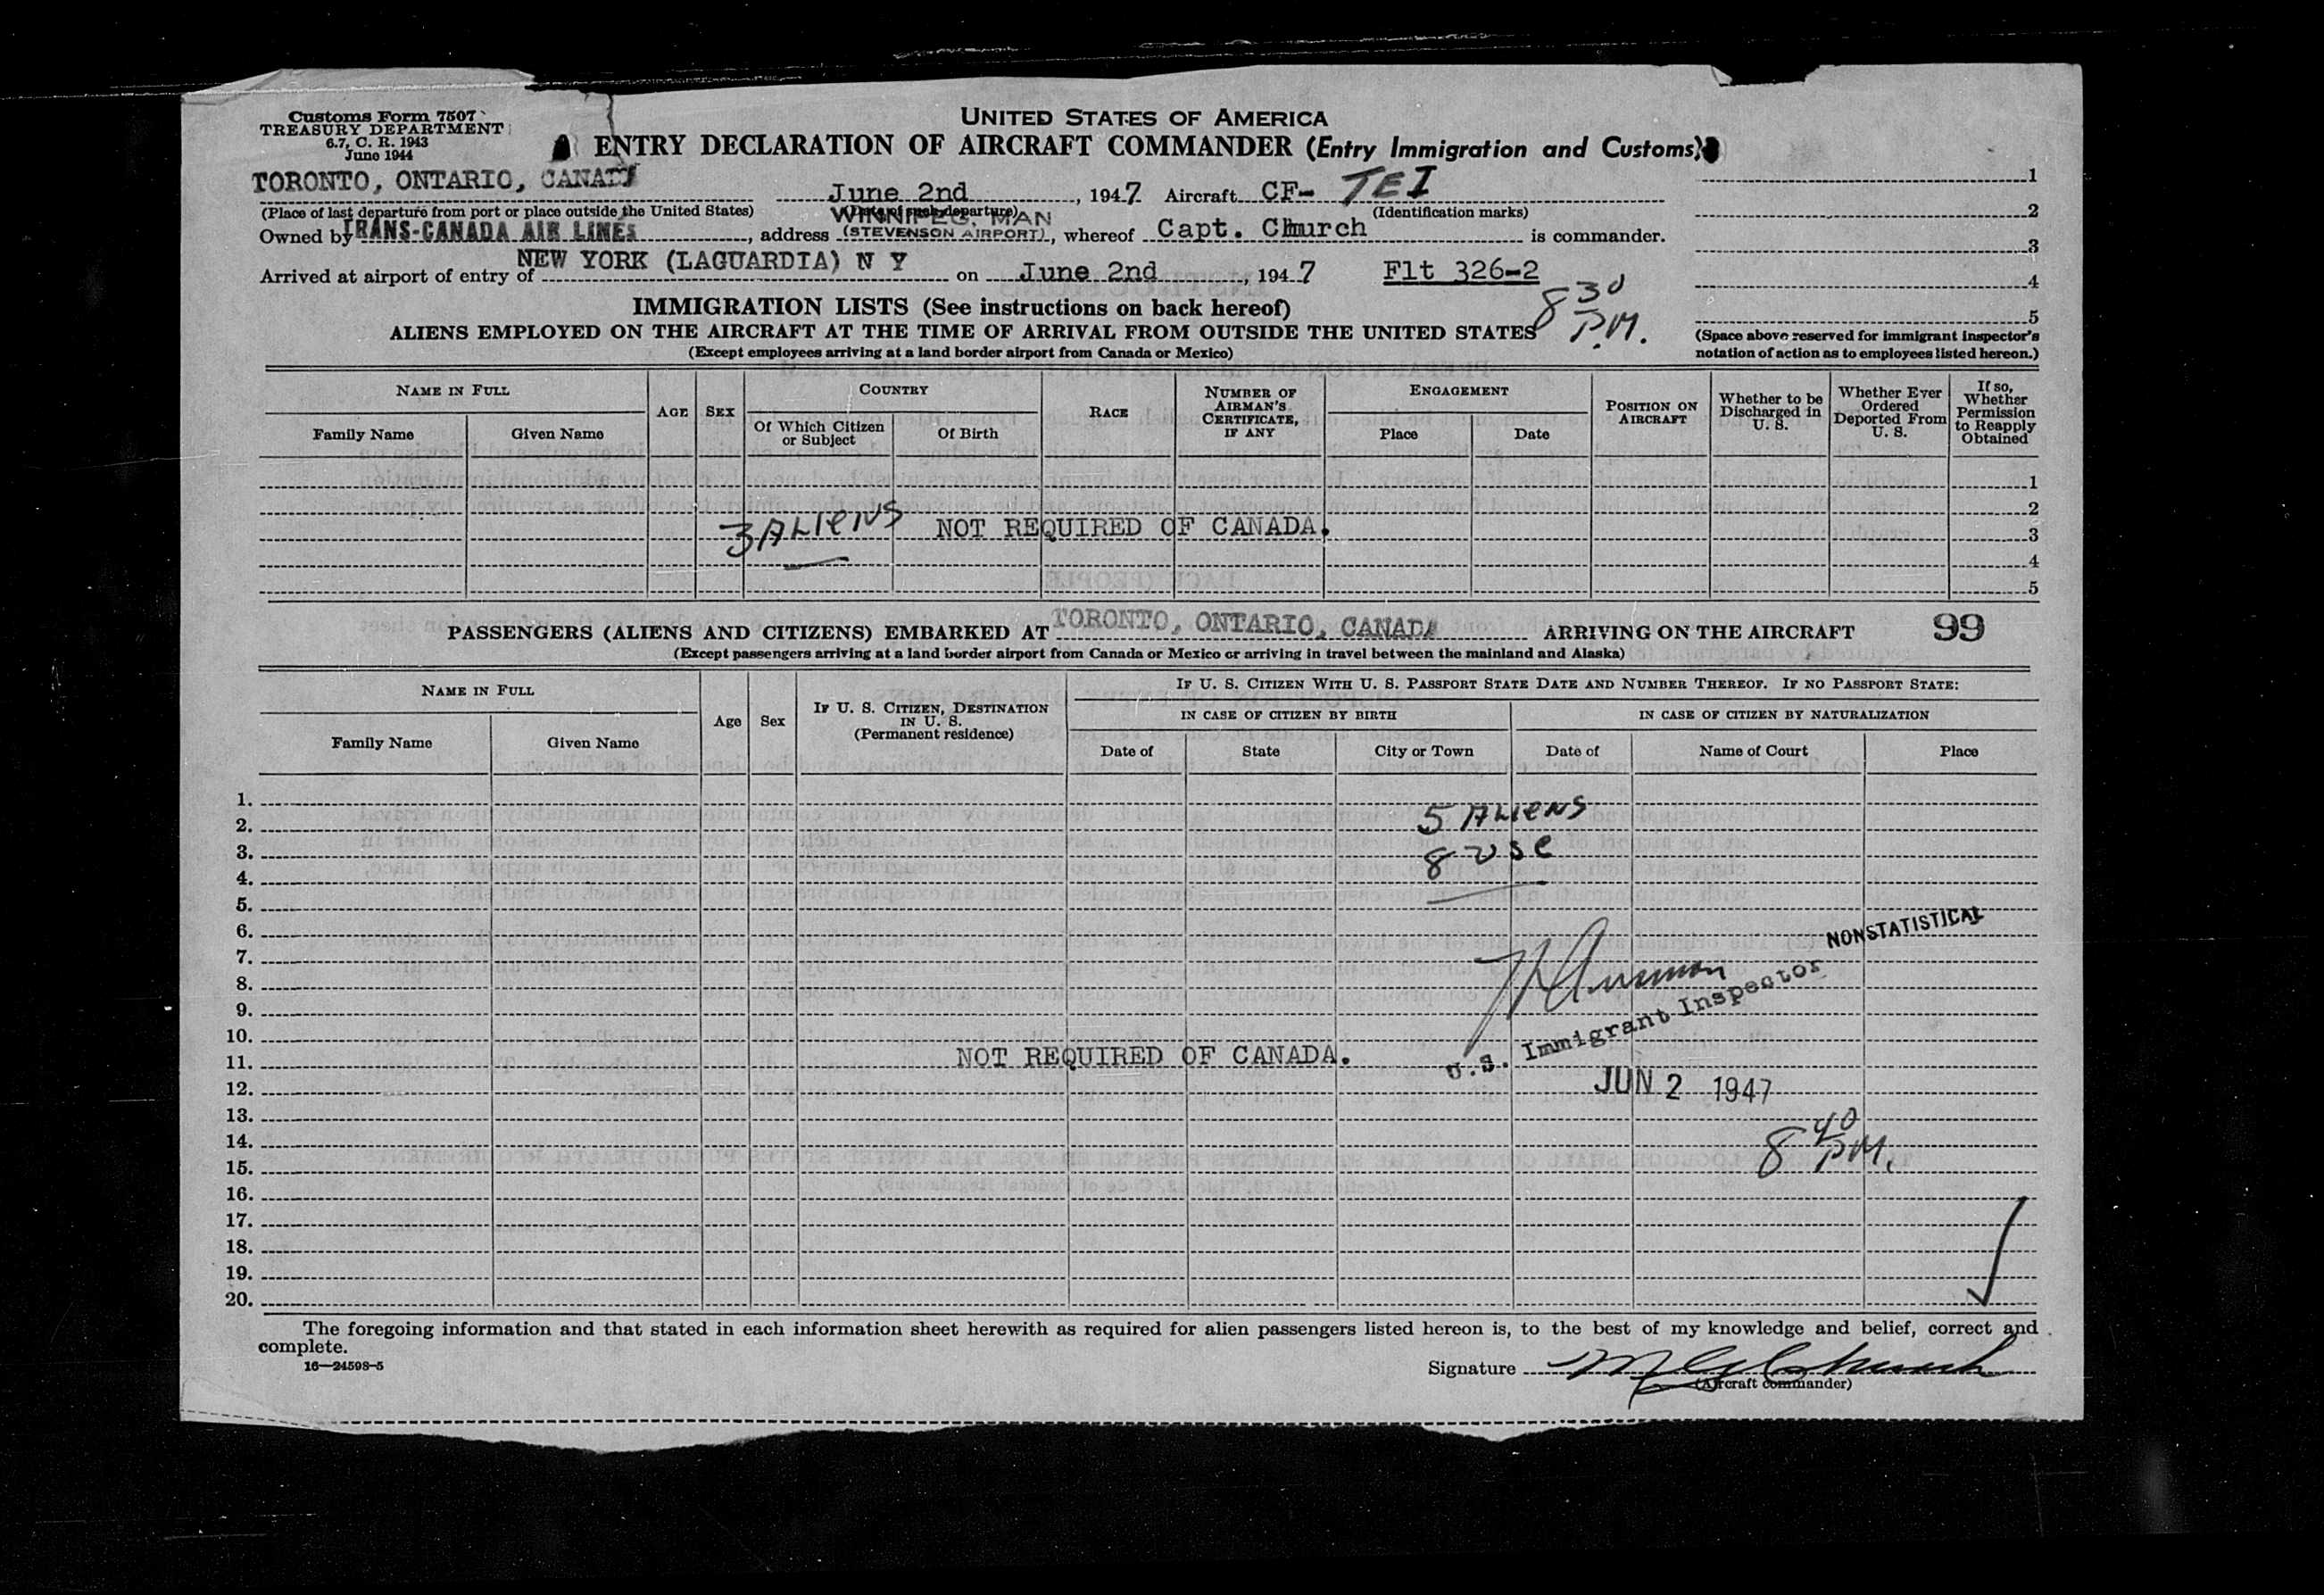 Customs Form 7507
TREASURY DEPARTMENT
6.7, C. R. 1943
June 1944
UNITED STATES OF AMERICA
ENTRY DECLARATION OF AIRCRAFT COMMANDER (Entry Immigration and Customs)
TORONTO, ONTARIO, CANADA June 2nd, 1947 Aircraft CF- TEI
(Place of last departure from port or place outside the United States) (Date of such departure) (Identification marks)
WINNIPEG, MAN
Owned by TRANS-CANADA AIR LINES, address (STEVENSON AIRPORT), whereof Capt. Church is commander.
Arrived at airport of entry of NEW YORK (LAGUARDIA) N Y on June 2nd, 1947 Flt 326-2
8 30 P.M.
1
2
3
4
5
(Space above reserved for immigrant inspector's
notation of action as to employees listed hereon.)
IMMIGRATION LISTS (See instructions on back hereof)
ALIENS EMPLOYED ON THE AIRCRAFT AT THE TIME OF ARRIVAL FROM OUTSIDE THE UNITED STATES
(Except employees arriving at a land border airport from Canada or Mexico)
NAME IN FULL
Family Name Given Name
AGE SEX
COUNTRY
Of Which Citizen or Subject Of Birth
RACE
NUMBER OF AIRMAN'S CERTIFICATE, IF ANY
ENGAGEMENT
Place Date
POSITION ON AIRCRAFT
Whether to be Discharged in U. S.
Whether Ever Ordered Deported From U. S.
If so, Whether Permission to Reapply Obtained
1
2
3 ALIENS NOT REQUIRED OF CANADA. 3
4
5
PASSENGERS (ALIENS AND CITIZENS) EMBARKED AT TORONTO, ONTARIO, CANADA ARRIVING ON THE AIRCRAFT 99
(Except passengers arriving at a land border airport from Canada or Mexico or arriving in travel between the mainland and Alaska)
NAME IN FULL
Family Name Given Name
Age Sex
IF U. S. CITIZEN, DESTINATION IN U. S. (Permanent residence)
IF U. S. CITIZEN WITH U. S. PASSPORT STATE DATE AND NUMBER THEREOF. IF NO PASSPORT STATE:
IN CASE OF CITIZEN BY BIRTH IN CASE OF CITIZEN BY NATURALIZATION
Date of State City or Town Date of Name of Court Place
1.
2. 5 ALIENS
3. 8 USC
4.
5.
6. NONSTATISTICAL
7.
8.
9.
10. U.S. Immigrant Inspector
11. NOT REQUIRED OF CANADA.
12. JUN 2 1947
13.
14. 8 40 PM.
15.
16.
17.
18.
19.
20.
The foregoing information and that stated in each information sheet herewith as required for alien passengers listed hereon is, to the best of my knowledge and belief, correct and
complete.
16—24598-5
Signature
(Aircraft commander)